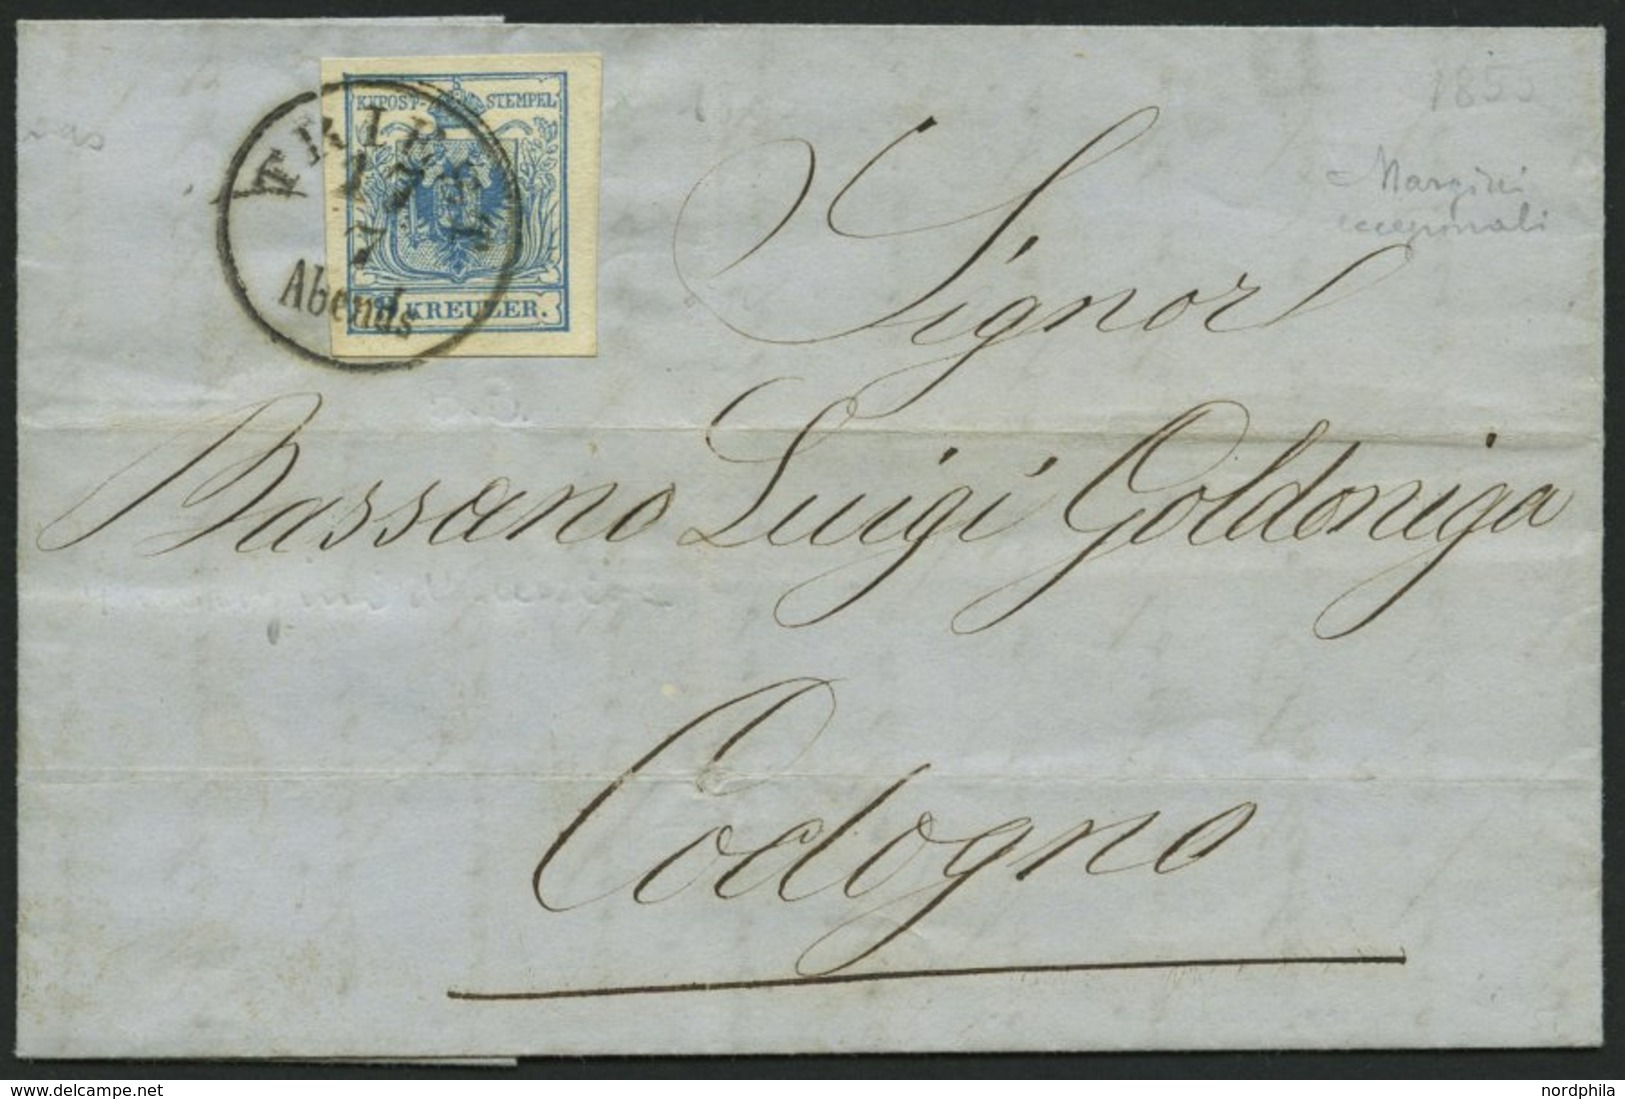 1855
Margini
eccezionali
KKPOST-STEMPEL
TRIEST
Abends
KREUZER.
Signor
Bassano Luigi Goldoniga
Codogno
www.delcampe.net
nordphila